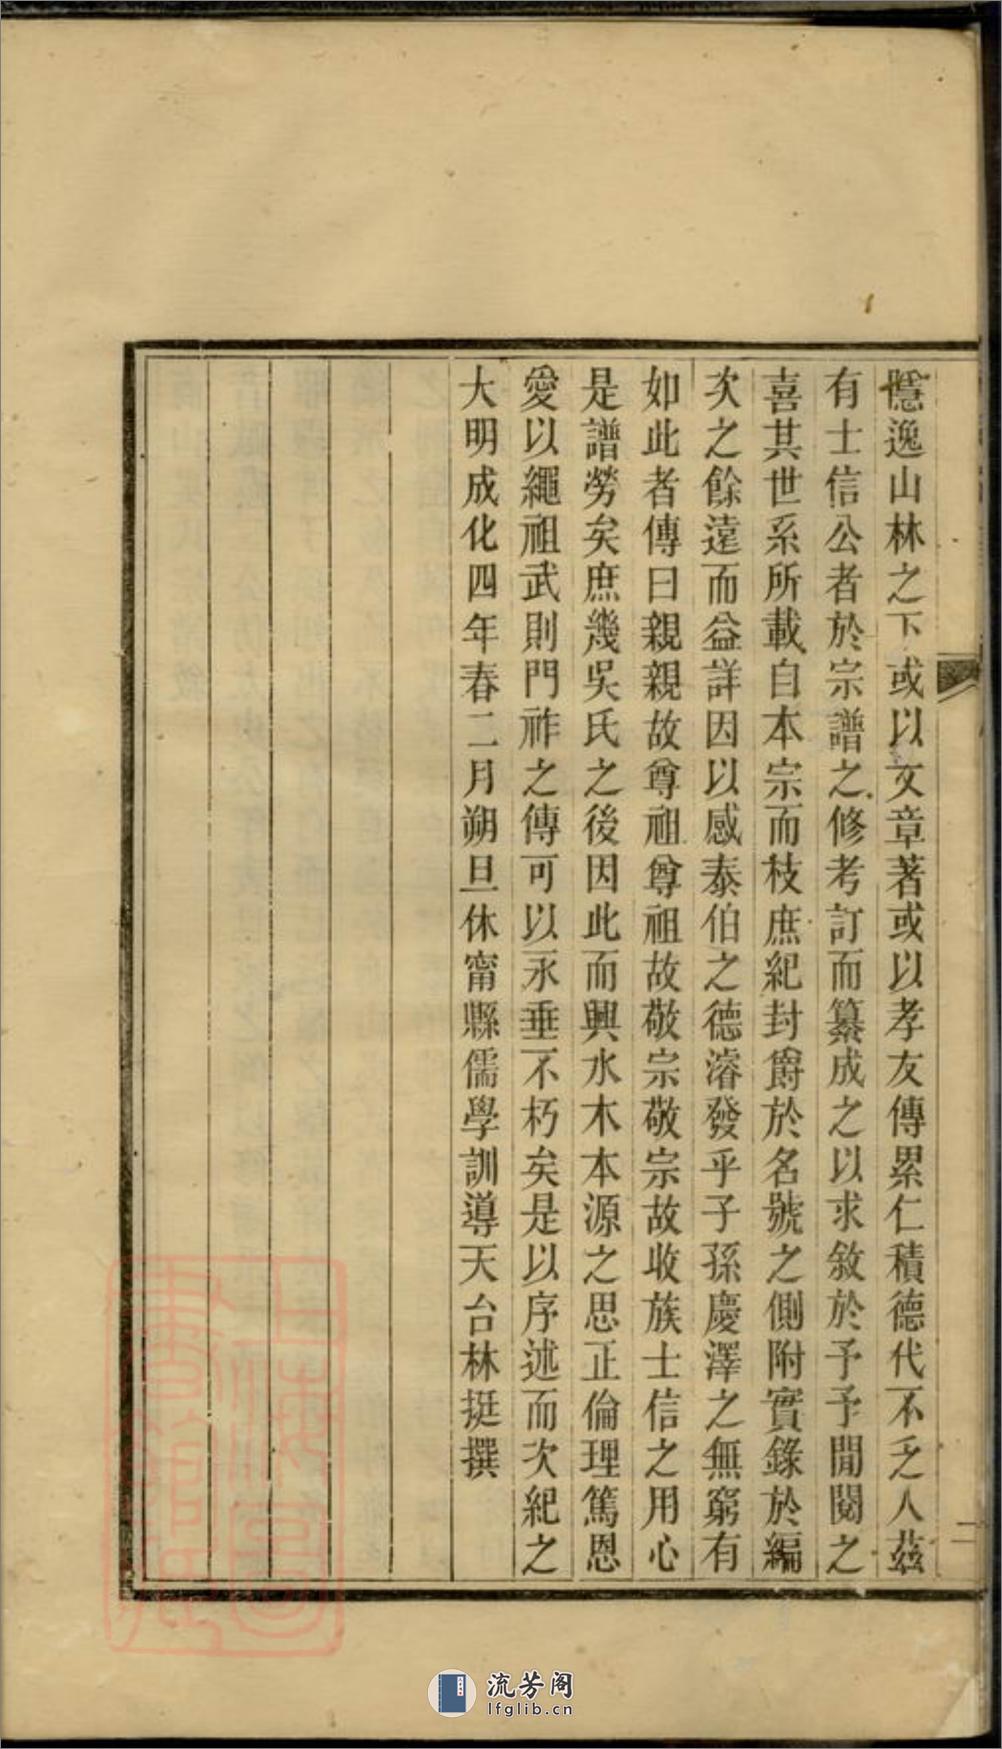 隱逸山林之下或以文章著或以孝友傳累仁積德代不乏人茲
有士信公者於宗譜之修考訂而纂成之以求敘於予予閒閱之
喜其世系所載自本宗而枝庶紀封爵於名號之側附實錄於編
次之餘遠而益詳因以感泰伯之德濬發乎子孫慶澤之無窮有
如此者傳曰親親故尊祖尊祖故敬宗敬宗故收族士信之用心
是譜勞矣庶幾吳氏之後因此而興水木本源之思正倫理篤恩
愛以繩祖武則門祚之傳可以永垂不朽矣是以序述而次紀之
大明成化四年春二月朔旦休甯縣儒學訓導天台林挺撰
二
上海圖書館藏
流芳阁
lfglib.cn